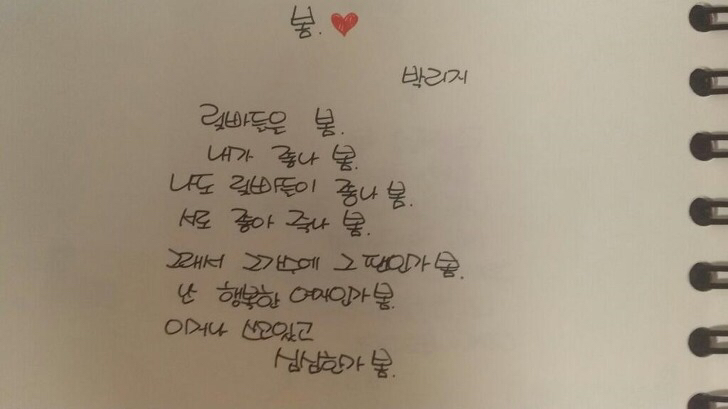 봄. ❤
박리지
럽바들은 봄.
내가 좋나 봄.
나도 럽바들이 좋나 봄.
서로 좋아 죽나 봄.
그래서 그가수에 그 팬인가 봄.
난 행복한 여자인가 봄.
이거나 쓰고있고
심심한가 봄.